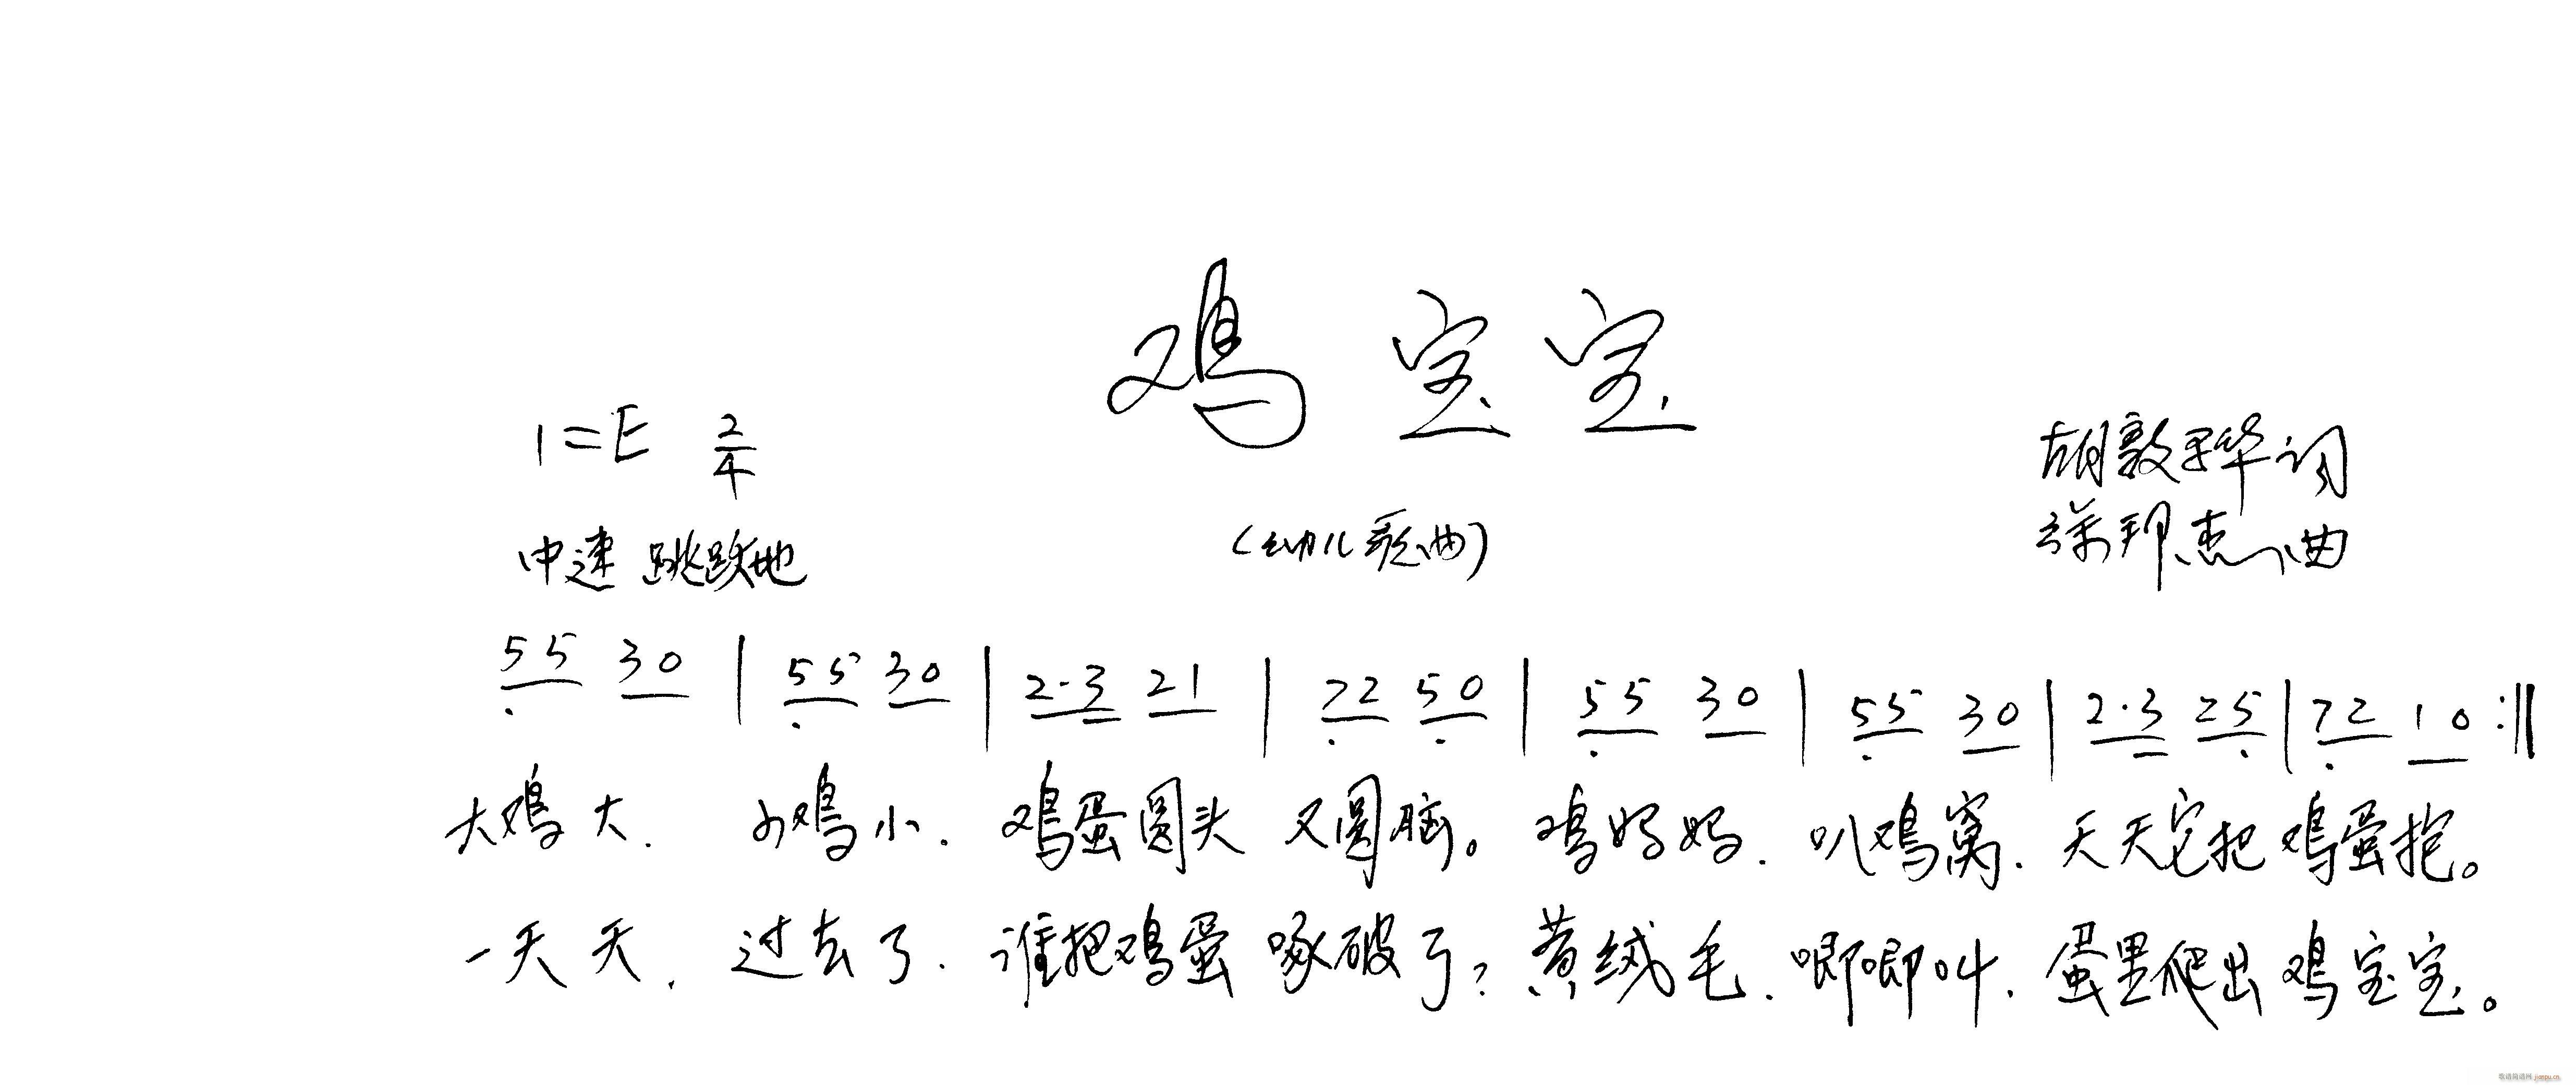 鸡宝宝
1=E 2/4
胡敦骅词
中速 跳跃地
(幼儿歌曲)
邦杰曲
55 30 | 55 30 | 2·3 21 | 72 50 | 55 30 | 55 30 | 2·3 25 | 72 10 :‖
大鸡大. 小鸡小. 鸡蛋圆头 又圆脑。 鸡妈妈. 叭鸡窝. 天天它把 鸡蛋抱。
一天天. 过去了. 谁把鸡蛋 啄破了? 黄绒毛. 唧唧叫. 蛋里爬出 鸡宝宝。
歌谱简谱网 jianpu.cn